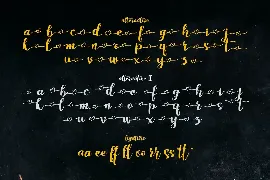 alternates
a b c d e f g h i j
k l m n o p q r s t
u v w x y z
alternate - 1
a b c d e f g h i j
k l m n o p q r s t
u v w x y z
ligature
aa ee ff ff oo rr ss tt